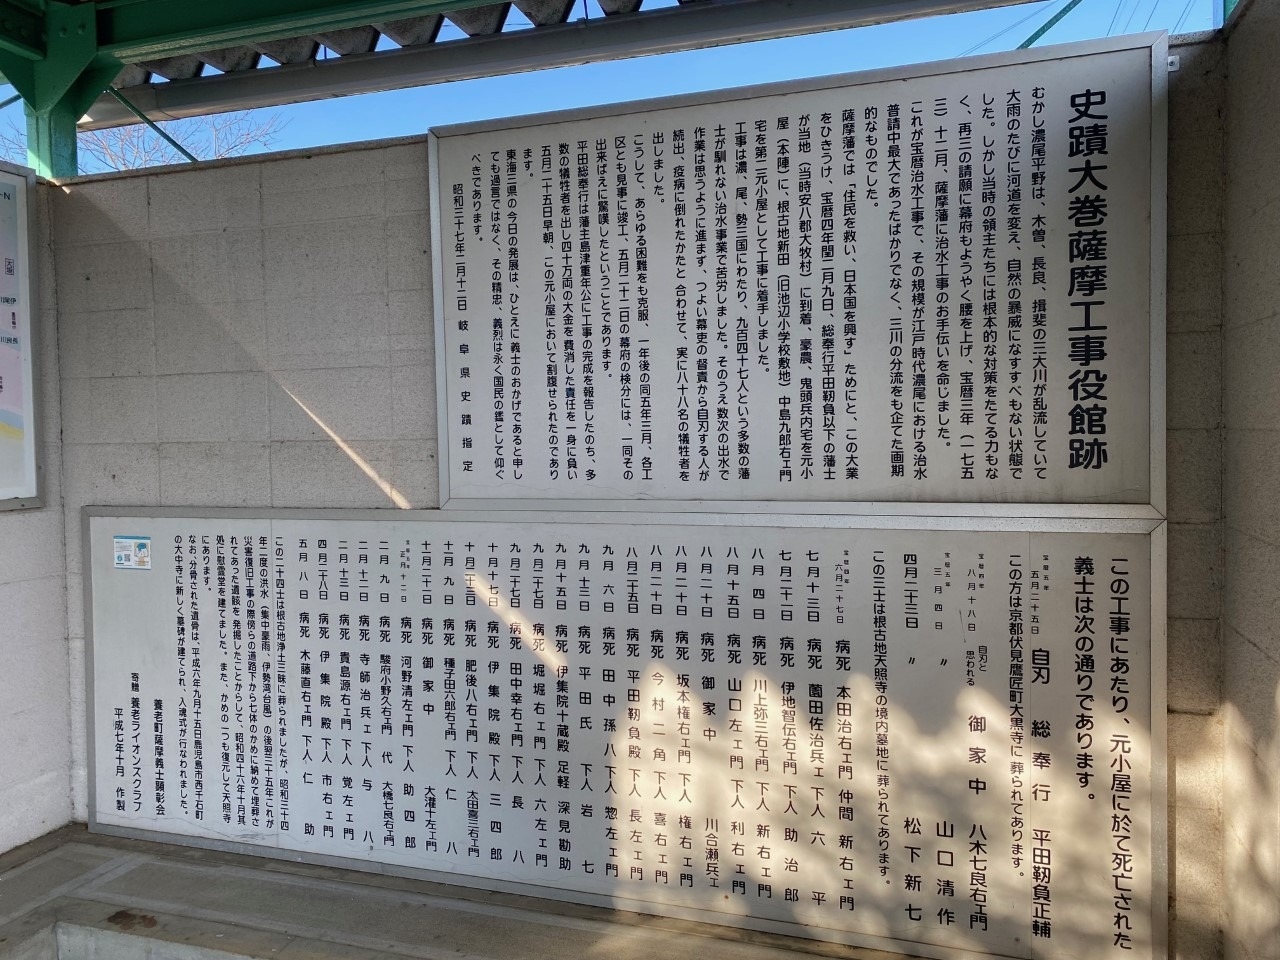 史蹟大巻薩摩工事役館跡
むかし濃尾平野は、木曽、長良、揖斐の三大川が乱流していて
大雨のたびに河道を変え、自然の暴威になすすべもない状態で
した。しかし当時の領主たちには根本的な対策をたてる力もな
く、再三の請願に幕府もようやく腰を上げ、宝暦三年（一七五
三）十二月、薩摩藩に治水工事のお手伝いを命じました。
これが宝暦治水工事で、その規模が江戸時代濃尾における治水
普請中最大であったばかりでなく、三川の分流をも企てた画期
的なものでした。
薩摩藩では「住民を救い、日本国を興す」ためにと、この大業
をひきうけ、宝暦四年閏二月九日、総奉行平田靭負以下の藩士
が当地（当時安八郡大牧村）に到着、豪農、鬼頭兵内宅を元小
屋（本陣）に、根古地新田（旧池辺小学校敷地）中島九郎右ヱ門
宅を第二元小屋として工事に着手しました。
工事は濃、尾、勢三国にわたり、九百四十七人という多数の藩
士が馴れない治水事業で苦労しました。そのうえ数次の出水で
作業は思うように進まず、つよい幕吏の督責から自刃する人が
続出、疫病に倒れたかたと合わせて、実に八十八名の犠牲者を
出しました。
こうして、あらゆる困難をも克服、一年後の同五年三月、各工
区とも見事に竣工、五月二十二日の幕府の検分には、一同その
出来ばえに驚嘆したということであります。
平田総奉行は藩主島津重年公に工事の完成を報告したのち、多
数の犠牲者を出し四十万両の大金を費消した責任を一身に負い
五月二十五日早朝、この元小屋において割腹せられたのであり
ます。
東海三県の今日の発展は、ひとえに義士のおかげであると申し
ても過言ではなく、その精忠、義烈は永く国民の鑑として仰ぐ
べきであります。
昭和三十七年二月十二日 岐阜県史蹟指定
この工事にあたり、元小屋に於て死亡された
義士は次の通りであります。
宝暦五年 五月二十五日 自刃 総奉行 平田靭負正輔
この方は京都伏見鷹匠町大黒寺に葬られてあります。
宝暦四年 八月十八日 自刃と思われる 御家中 八木七良右ヱ門
宝暦五年 三月四日 〃 山口清作
四月二十三日 〃 松下新七
この三士は根古地天照寺の境内墓地に葬られてあります。
宝暦四年 六月二十七日 病死 本田治右ヱ門 仲間 新右ヱ門
七月十三日 病死 薗田佐治兵ヱ 下人 六平
七月二十二日 病死 伊地智伝右ヱ門 下人 助治郎
八月四日 病死 川上弥三右ヱ門 下人 新右ヱ門
八月十五日 病死 山口左ヱ門 下人 利右ヱ門
八月二十日 病死 御家中 川合瀬兵ヱ
八月二十日 病死 坂本権右ヱ門 下人 権右ヱ門
八月二十日 病死 今村二角 下人 喜右ヱ門
八月二十五日 病死 平田靭負殿 下人 長左ヱ門
九月六日 病死 田中孫八 下人 惣左ヱ門
九月十三日 病死 平田氏 下人 岩七
九月十五日 病死 伊集院十蔵殿 足軽 深見勘助
九月二十七日 病死 堀堀右ヱ門 下人 六左ヱ門
九月二十七日 病死 田中幸右ヱ門 下人 長八
十月十七日 病死 伊集院殿 下人 三四郎
十月二十三日 病死 肥後八右ヱ門 下人 太田喜三右ヱ門
十一月九日 病死 種子田六郎右ヱ門 下人 仁八
十一月二十一日 病死 御家中 大灌十左ヱ門
宝暦五年 正月十二日 病死 河野清左ヱ門 下人 助四郎
二月九日 病死 駿府小野久右ヱ門 代 大橋七良右ヱ門
二月十二日 病死 寺師治兵ヱ 下人 与八
二月十三日 病死 貴島源右ヱ門 下人 覚左ヱ門
四月二十八日 病死 伊集院殿 下人 市右ヱ門
五月八日 病死 木藤直右ヱ門 下人 仁助
この二十四士は根古地浄土三昧に葬られましたが、昭和三十四
年二度の洪水（集中豪雨、伊勢湾台風）の後翌三十五年これが
災害復旧工事の際傍らの道路下から七体のかめに納めて埋葬さ
れてあった遺骸を発掘したことからして、昭和四十六年十月其
処に慰霊堂を建てました。また、かめの一つも復元して天照寺
にあります。
なお、分骨された遺骨は、平成六年九月十五日鹿児島市西千石町
の大中寺に新しく墓碑が建てられ、入魂式が行なわれました。
養老町薩摩義士顕彰会
寄贈 養老ライオンズクラブ
平成七年十月 作製